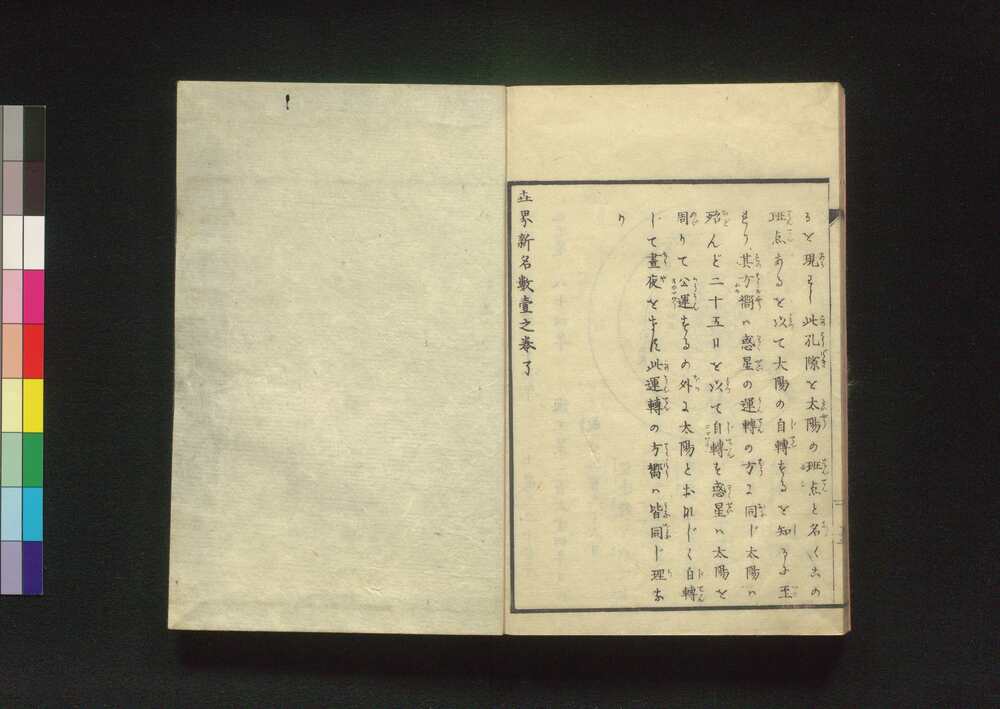 るを現す此孔隙を太陽の斑点と名くこの
斑点あるを以て大陽の自轉するを知るに至
れり其方嚮ハ惑星の運轉の方に同じ太陽ハ
殆んど二十五日を以て自轉す惑星ハ太陽を
周りて公運するの外に太陽とおなじく自轉
じて晝夜を生ず此運轉の方嚮ハ皆同じ理な
り
世界新名數壹之巻了